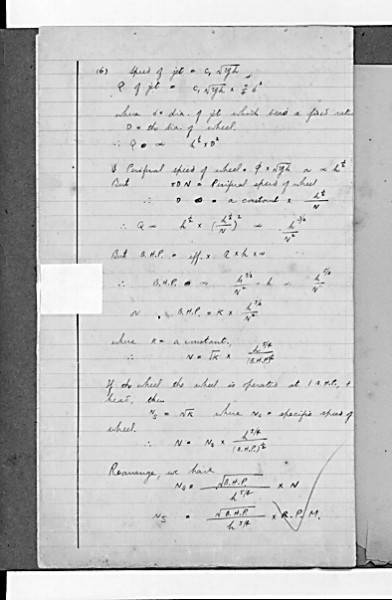 (6) Speed of jet = c₁ √2gh
Q of jet = c₁ √2gh × π/4 d²
where d = dia. of jet which bears a fixed ratio
D = the dia. of wheel.
∴ Q ∝ h^½ × D²
Periferal speed of wheel = φ × √2gh ∝ h^½
But πDN = Periferal speed of wheel
∴ D = a constant × h^½/N
∴ Q ∝ h^½ × (h^½/N)² ∝ h^3/2/N²
But B.H.P. = eff. × Q × h × w
∴ B.H.P. ∝ h^3/2/N² × h ∝ h^5/2/N²
∴ B.H.P. = K × h^5/2/N²
where K = a constant.
∴ N = √K × h^5/4/(B.H.P.)^½
If the wheel is operated at 1 B.H.P., +
head, then
N_s = √K where N_s = specific speed of
wheel.
∴ N = N_s × h^5/4/(B.H.P.)^½
Rearrange, we have
N_s = √B.H.P./h^5/4 × N
N_s = √B.H.P./h^5/4 × R.P.M.